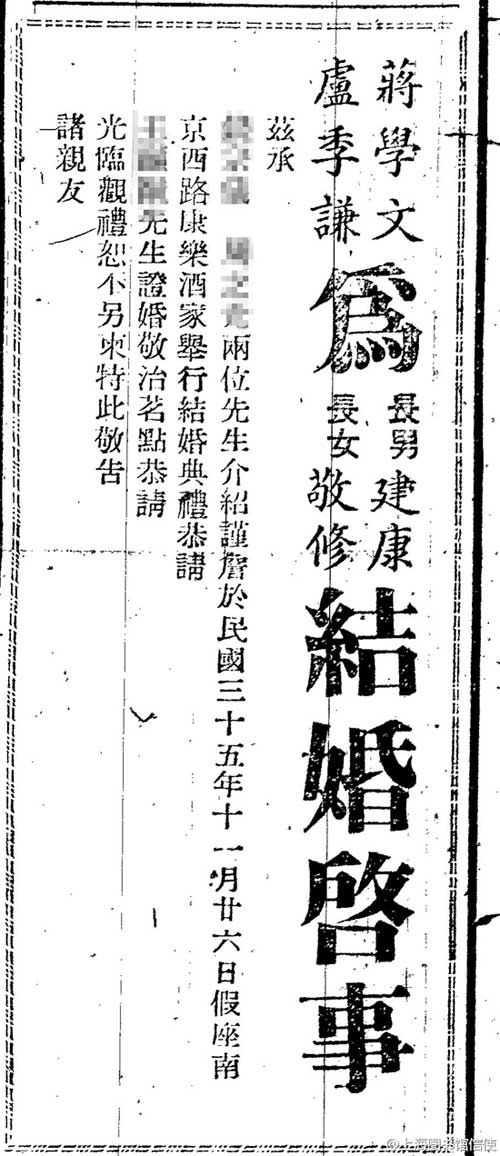 蔣學文
盧季謙
爲
長男建康
長女敬修
結婚啓事
茲承
兩位先生介紹謹詹於民國三十五年十一月廿六日假座南
京西路康樂酒家舉行結婚典禮恭請
先生證婚敬治茗點恭請
光臨觀禮恕不另柬特此敬告
諸親友
@上海圖書馆信使